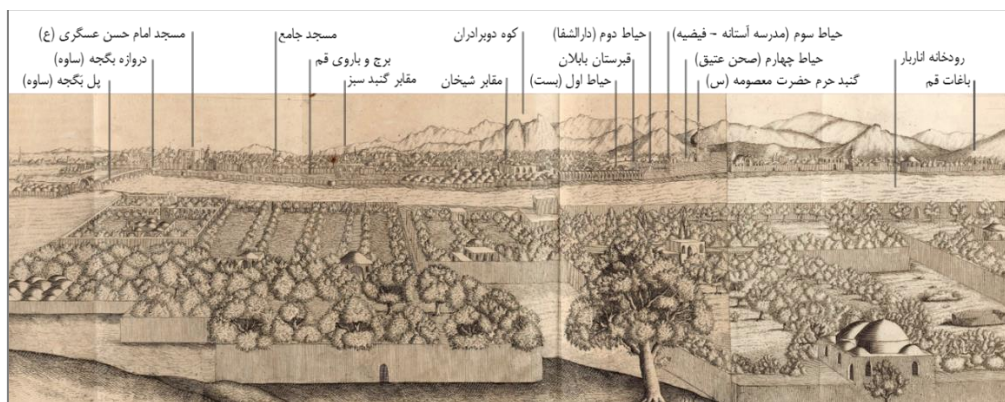 رودخانه اناربار
باغات قم
حیاط سوم (مدرسه آستانه - فیضیه)
حیاط چهارم (صحن عتیق)
گنبد حرم حضرت معصومه (س)
حیاط دوم (دارالشفا)
قبرستان بابلان
حیاط اول (بست)
کوه دوبرادران
مقابر شیخان
مسجد جامع
برج و باروی قم
مقابر گنبد سبز
مسجد امام حسن عسگری (ع)
دروازه بگجه (ساوه)
پل بگجه (ساوه)